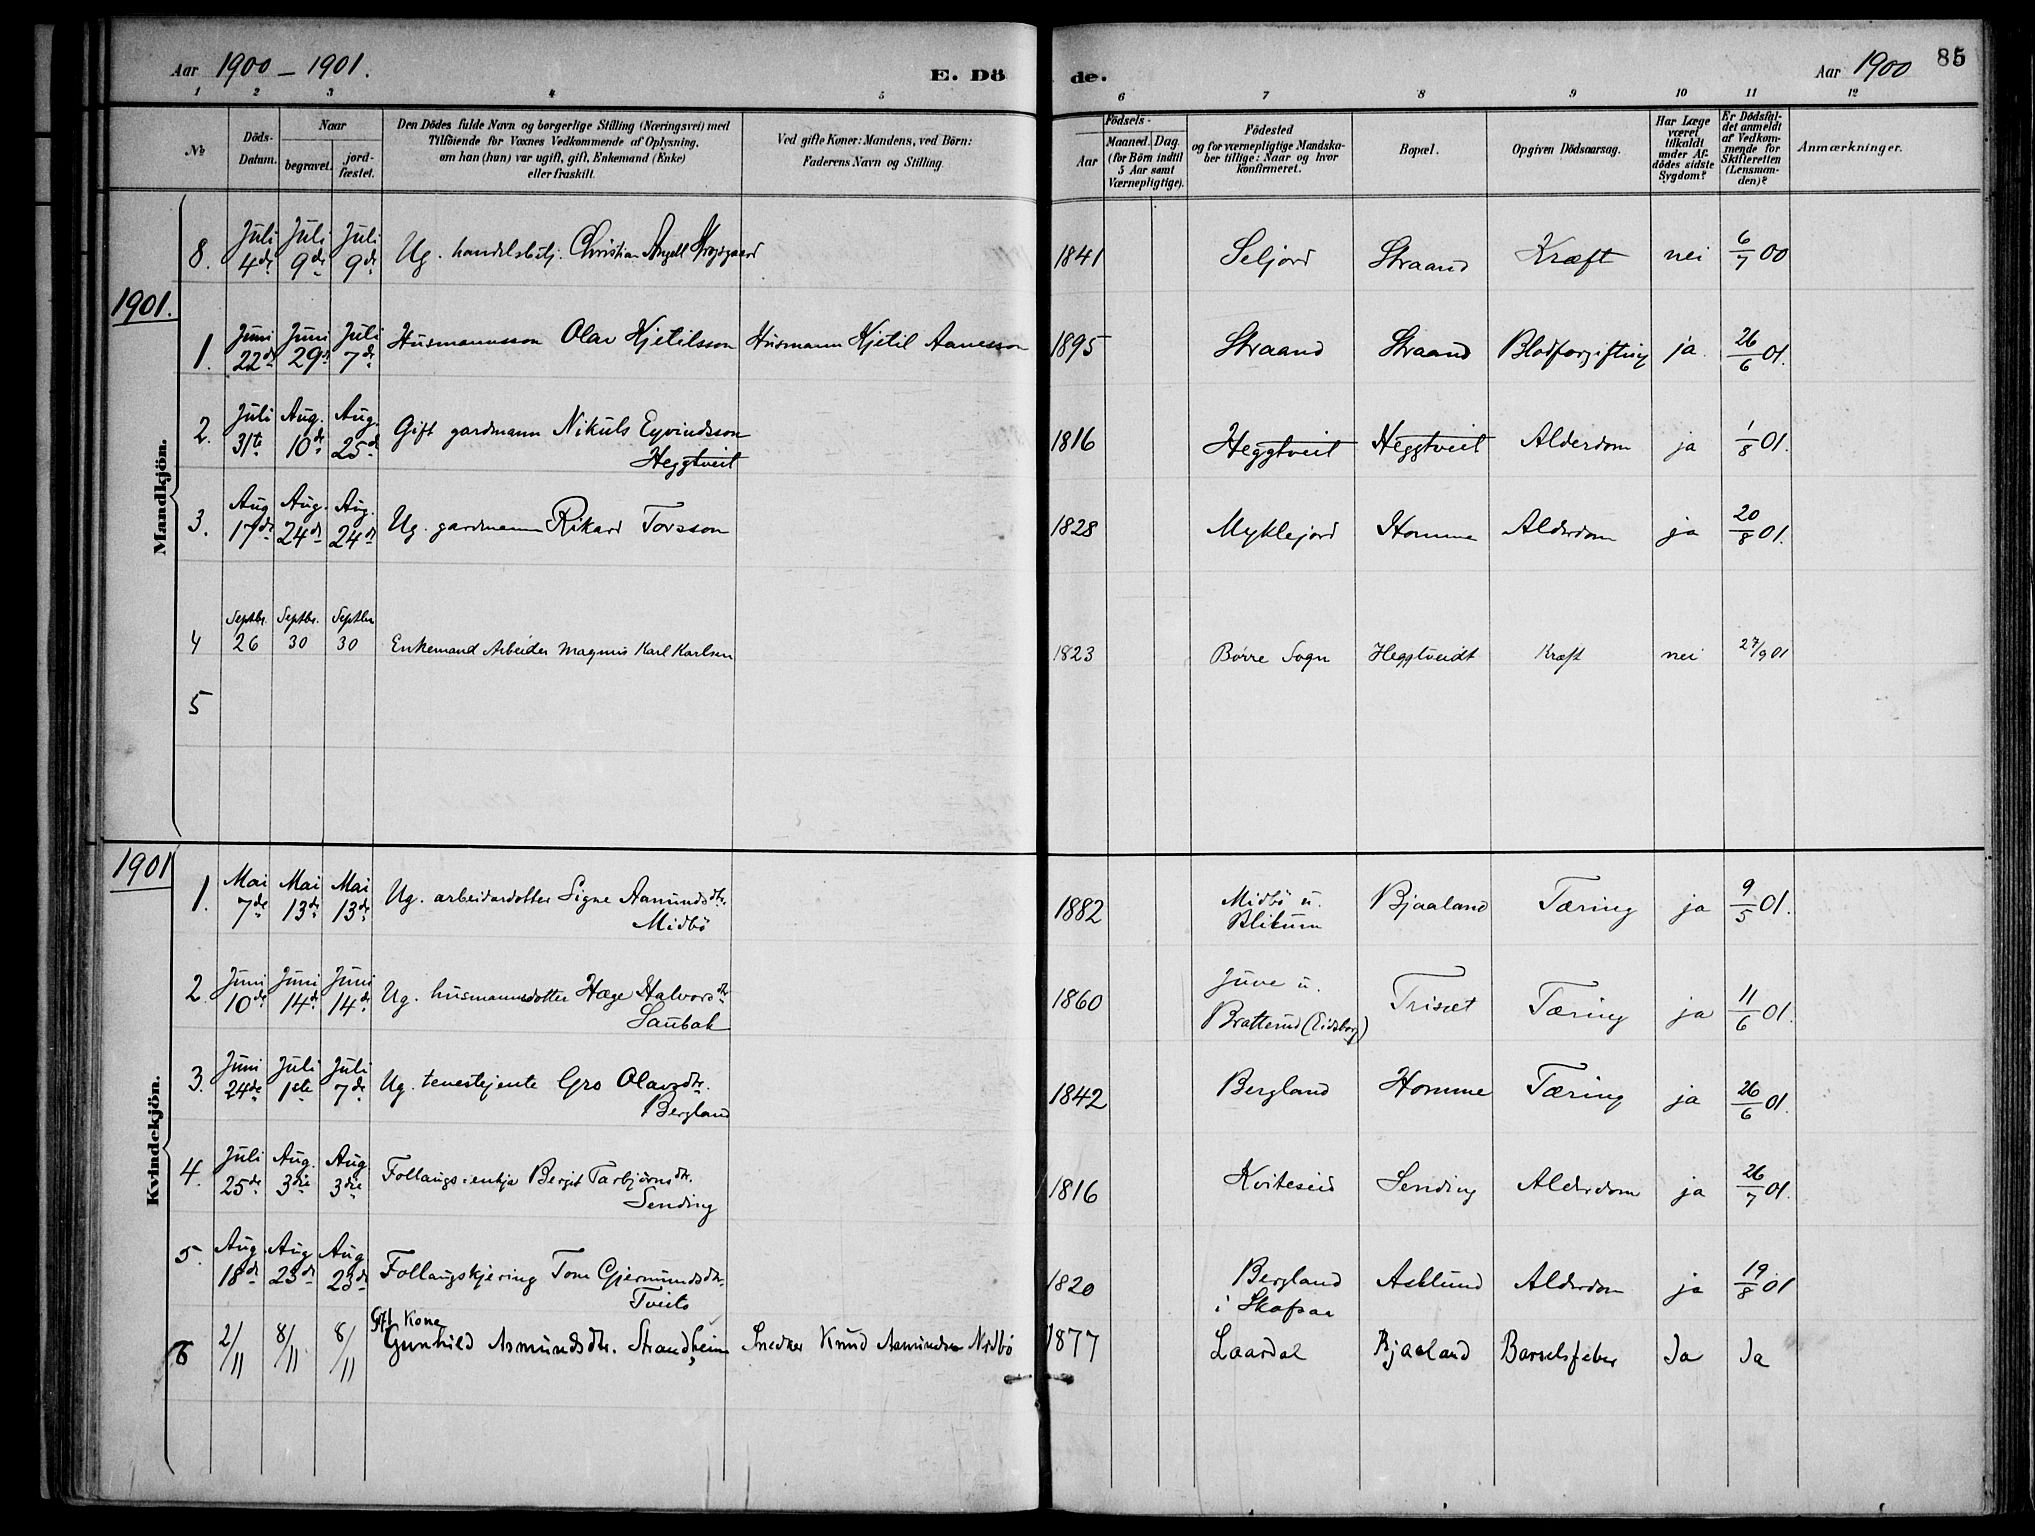 Aar 1900 – 1901. E. Dö de. Aar 1900 85
1 2 3 4 5 6 7 8 9 10 11 12
№ Döds-Datum. Naar begravet. jord-fæstet.
Den Dödes fulde Navn og borgerlige Stilling (Næringsvei) med
Tilföiende for Voxnes Vedkommende af Oplysning,
om han (hun) var ugift, gift, Enkemand (Enke)
eller fraskilt.
Ved gifte Koner: Mandens, ved Börn:
Faderens Navn og Stilling.
Födsels-
Aar Maaned. Dag.
(for Börn indtil
5 Aar samt
Værnepligtige).
Födested
og for værnepligtige Mandska-
ber tillige: Naar og hvor
konfirmeret.
Bopæl.
Opgiven Dödsaarsag.
Har Læge
været
tilkaldt
under Af-
dödes sidste
Sygdom?
Er Dödsfal-
det anmeldt
af Vedkom-
mende for
Skifteretten
(Lensman-
den)?
Anmærkninger.
Mandkjön.
8. Juli 4de Juli 9de Juli 9de Ug. handelsbetj. Christian Angell 1841 Seljord Straand Kræft nei 6/7 00
1901.
1. Juni 22de Juni 29de Juli 7de Husmannsson Olav Kjetilsson Husmann Kjetil Aanesson 1895 Straand Straand Blodforgiftning ja. 26/6 01.
2. Juli 31te Aug. 10de Aug. 25de Gift gardmann Nikuls Eyvindsson 1816 Heggtveit Heggtveit Alderdom ja 1/8 01.
Heggtveit
3. Aug 17de Aug. 24de Aug. 24de Ug. gardmann Rikard Torsson 1828 Myklejord Homme Alderdom ja 20/8 01.
4 Septbr. 26 Septbr. 30 Septbr 30 Enkemand Arbeider Magnus Karl Karlsen 1823 Börre Sogn Heggtveidt Kræft nei 27/9 01
5
1901
Kvindekjön.
1. Mai 7de Mai 13de Mai 13de Ug. arbeidardotter Signe Aamundsdtr. 1882 Midbö u. Bjaaland Tæring ja 9/5 01.
Midbö Blikum
2. Juni 10de Juni 14de Juni 14de Ug. husmannsdotter Hæge Halvorsdtr. 1860 Juve u. Trisæt Tæring ja 11/6 01.
Saubak Bratterud (Eidsborg)
3. Juni 24de Juli 1ste Juli 7de Ug. tenestejente Gro Olavsdtr. 1842 Bergland Homme Tæring ja 26/6 01.
Bergland
4. Juli 25de Aug. 3die Aug 3die Follaugs-enkja Bergit Tarbjörnsdtr. 1816 Kviteseid Sending Alderdom ja 26/7 01.
Sending
5. Aug. 18de Aug 23de Aug 23de Follaugskjering Tone Gjermundsdtr. 1820 Bergland Aslund Alderdom ja 19/8 01
Tveito i Skafsaa
Gift Kone
6 2/11 8/11 8/11 Gunhild Asmundsdtr. Strandheim Snedker Knud Asmundsen Midbö 1877 Laardal Bjaaland Barselsfeber Ja Ja